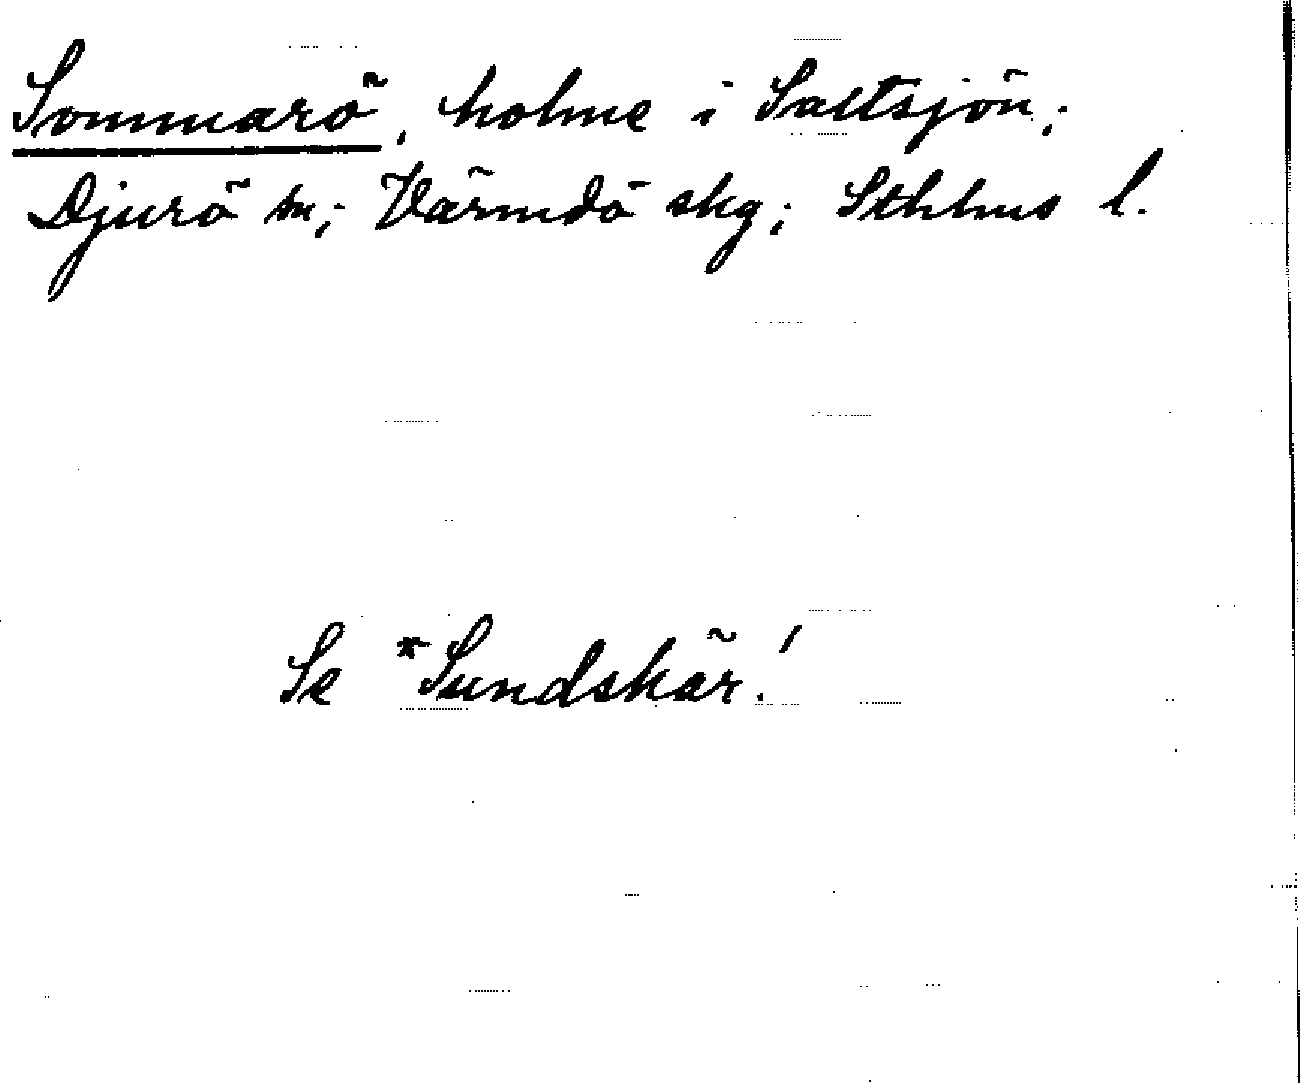 Sommarö, holme i Saltsjön;
Djurö sn; Värmdö skg; Sthlms l.
Se *Sundskär!